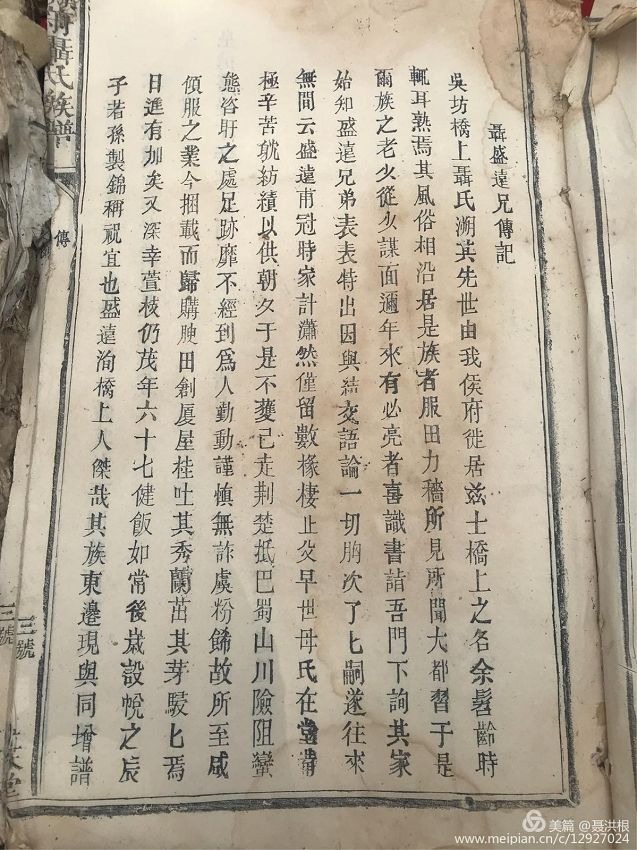 聶盛遠兄傳記
吳坊橋上聶氏溯其先世由我侯府徙居茲土橋上之名余髫齡時
輒耳熟焉其風俗相沿居是族者服田力穡所見所聞大都習于是
爾族之老少從少謀面邇年來有必亮者喜識書詣吾門下詢其家
始知盛遠兄弟表表特出因與結交語論一切胸次了匕嗣遂往來
無間云盛遠甫冠時家計瀟然僅留數椽棲止父早世母氏在堂備
極辛苦躭紡績以供朝夕于是不獲已走荆楚抵巴蜀山川險阻蠻
態咨盱之處足跡靡不經到爲人勤動謹慎無詐虞粉飾故所至咸
傾服之業今捆載而歸購腴田創厦屋桂吐其秀蘭茁其芽駸匕焉
日進有加矣又深幸萱枝仍茂年六十七健飯如常後歲設帨之辰
子若孫製錦稱祝宜也盛遠洵橋上人傑哉其族東邊現與同增譜
聶氏族譜
傳
三號
三號
堂
美篇 @聂洪根
www.meipian.cn/c/12927024